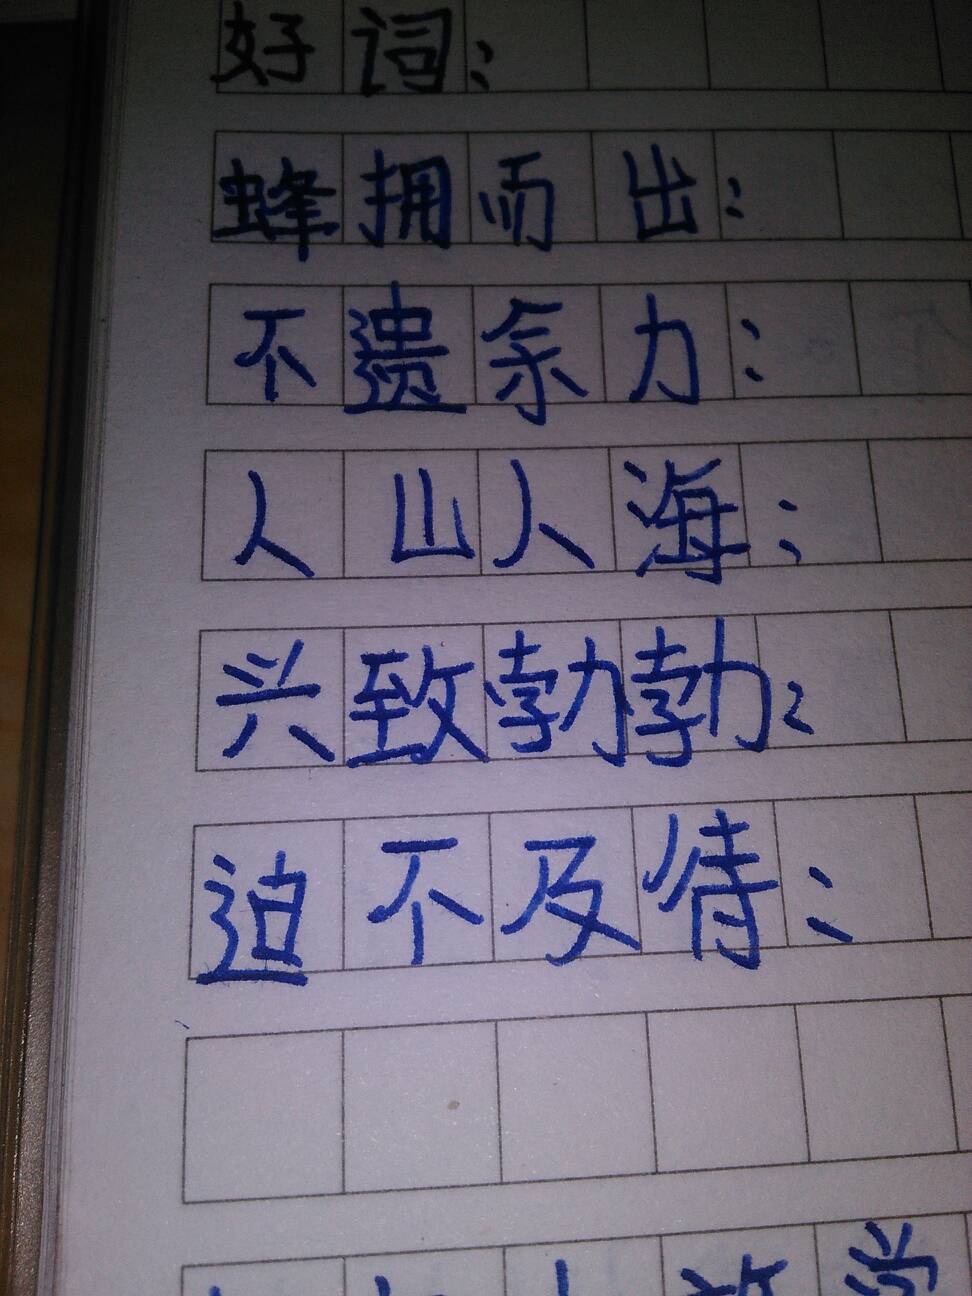 好词：
蜂拥而出：
不遗余力：
人山人海：
兴致勃勃：
迫不及待：